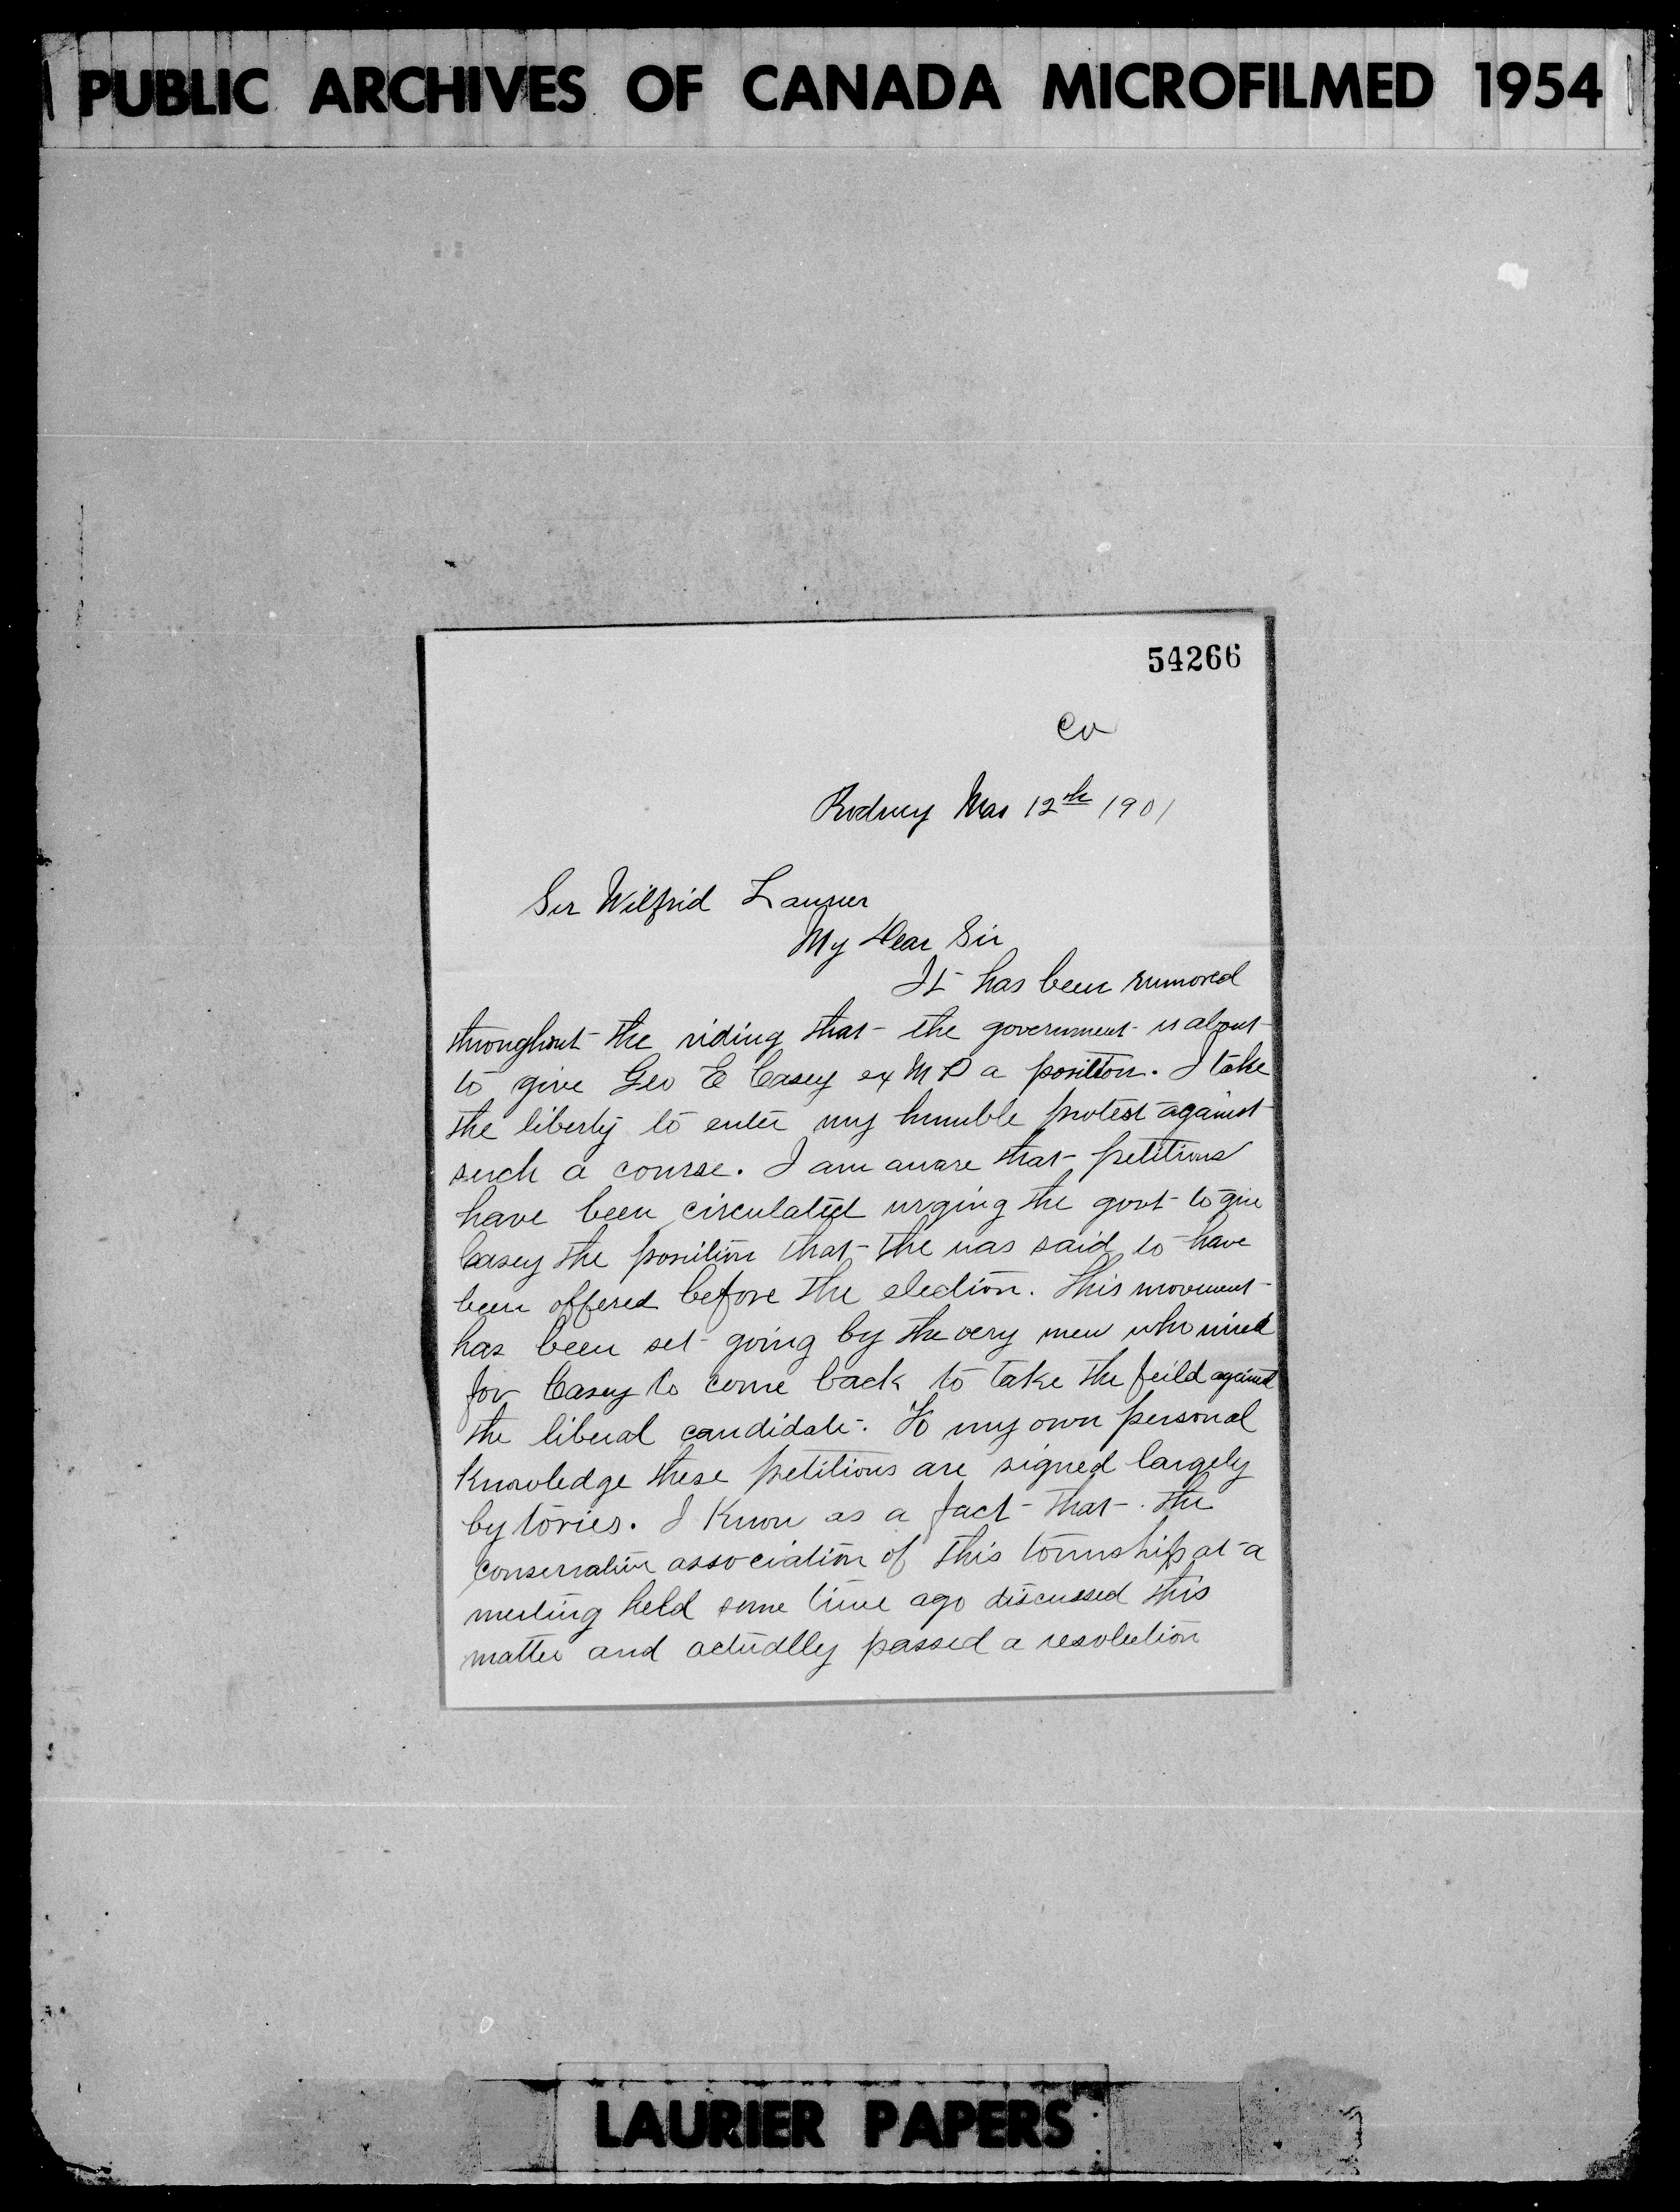 PUBLIC ARCHIVES OF CANADA MICROFILMED 1954
54266
Rodney Mar 12th 1901
Sir Wilfrid Laurier
My Dear Sir
It has been rumored
throughout the riding that the government is about
to give Geo E Casey ex M P a position. I take
the liberty to enter my humble protest against
such a course. I am aware that petitions
have been circulated urging the govt to give
Casey the position that the was said to have
been offered before the election. This movement
has been set going by the very men who wired
for Casey to come back to take the feild against
the liberal candidate. To my own personal
Knowledge these petitions are signed largely
by tories. I Know as a fact that the
conservative association of this township at a
meeting held some time ago discussed this
matter and actually passed a resolution
LAURIER PAPERS